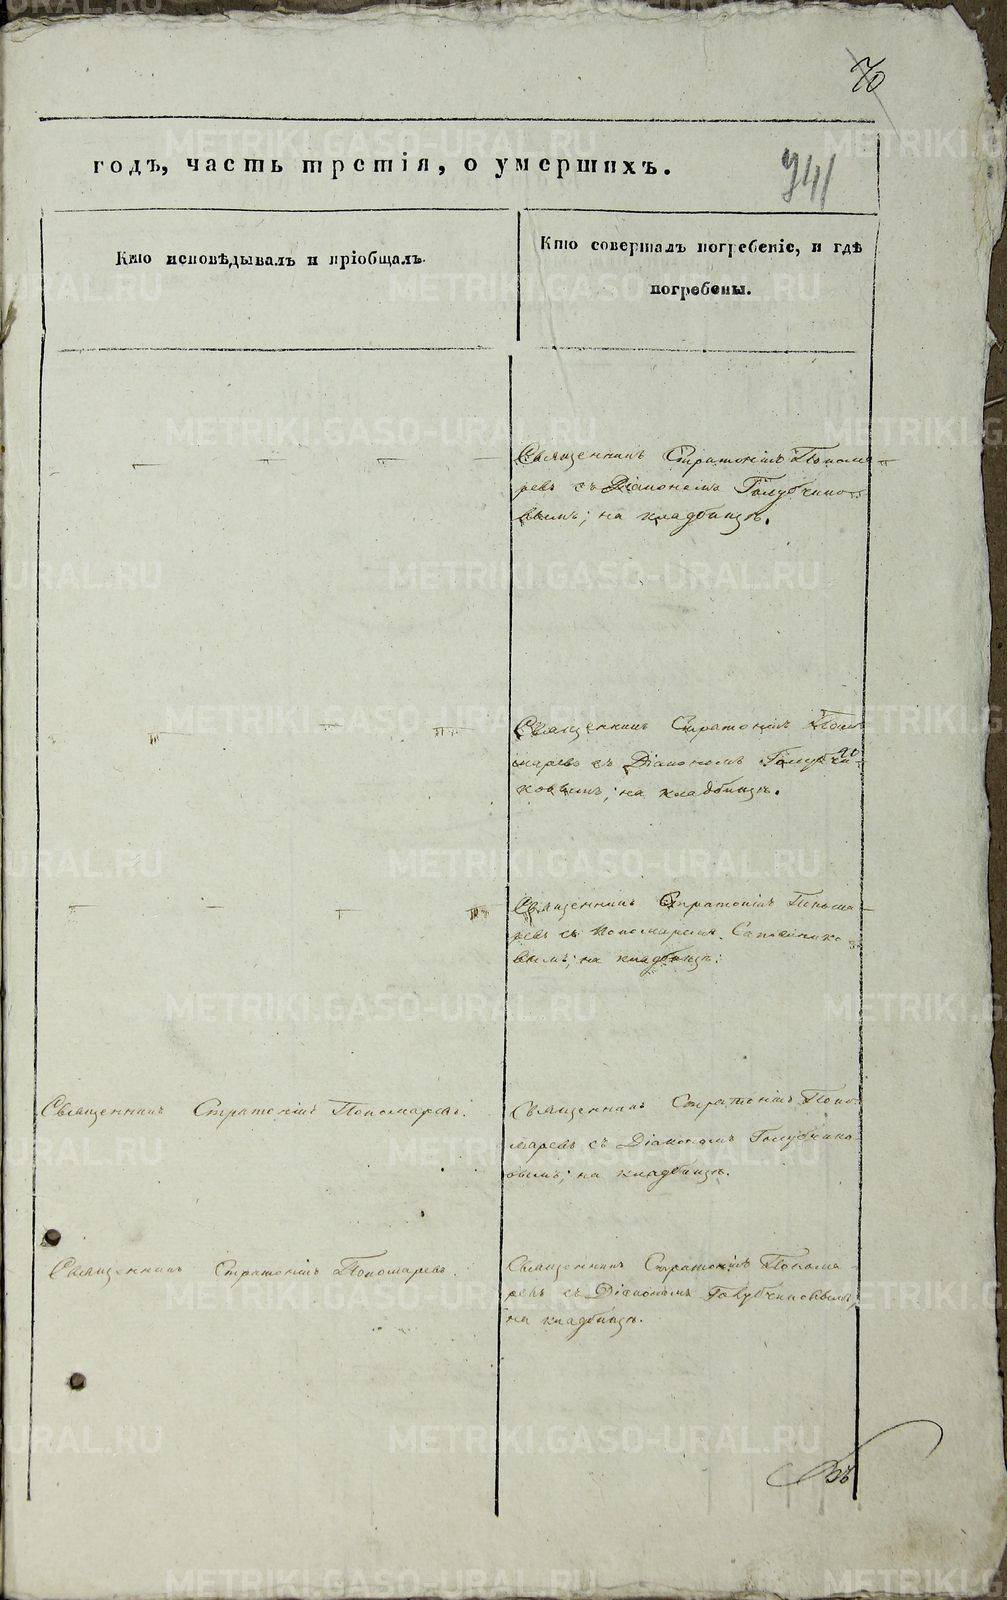 70
741
годъ, часть третія, о умершихъ.
Кто исповѣдывалъ и пріобщалъ.
Кто совершалъ погребеніе, и гдѣ
погребены.
Священникъ Стратоникъ Понома-
ревъ съ Діакономъ Голубчико-
вымъ; на кладбищѣ.
Священникъ Стратоникъ Поно-
маревъ съ Діакономъ Голубчи-
ковымъ; на кладбищѣ.
Священникъ Стратоникъ Понома-
ревъ съ Пономаремъ
вымъ; на кладбищѣ.
Священникъ Стратоникъ Пономаревъ.
Священникъ Стратоникъ Поно-
маревъ съ Діакономъ Голубчико-
вымъ; на кладбищѣ.
Священникъ Стратоникъ Пономаревъ.
Священникъ Стратоникъ Понома-
ревъ съ Діакономъ Голубчиковымъ,
на кладбищѣ.
METRIKI.GASO-URAL.RU